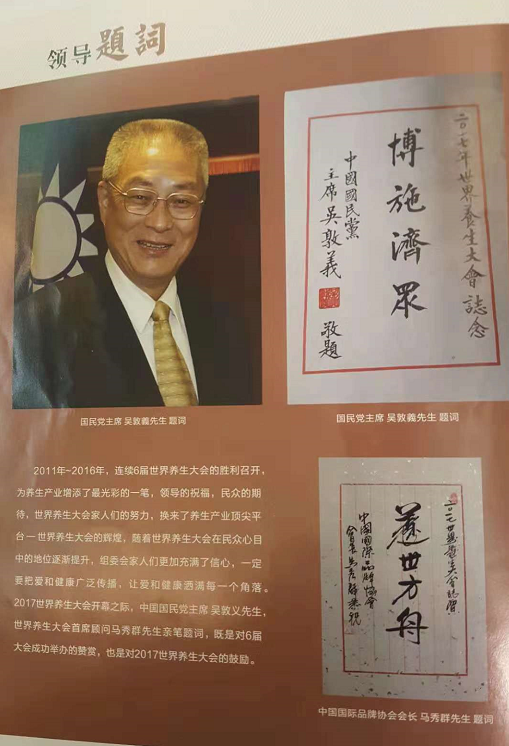 领导題詞
二〇一七年世界養生大會 誌念
博施濟眾
中國國民黨
主席吳敦義 敬題
国民党主席 吴敦義先生 题词
国民党主席 吴敦義先生 题词
2011年-2016年，连续6届世界养生大会的胜利召开，
为养生产业增添了最光彩的一笔，领导的祝福，民众的期
待，世界养生大会家人们的努力，换来了养生产业顶尖平
台—世界养生大会的辉煌，随着世界养生大会在民众心目
中的地位逐渐提升，组委会家人们更加充满了信心，一定
要把爱和健康广泛传播，让爱和健康洒满每一个角落。
2017世界养生大会开幕之际，中国国民党主席 吴敦义先生，
世界养生大会首席顾问马秀群先生亲笔题词，既是对6届
大会成功举办的赞赏，也是对2017世界养生大会的鼓励。
世方舟
中國國際品牌協會
中国国际品牌协会会长 马秀群先生 题词